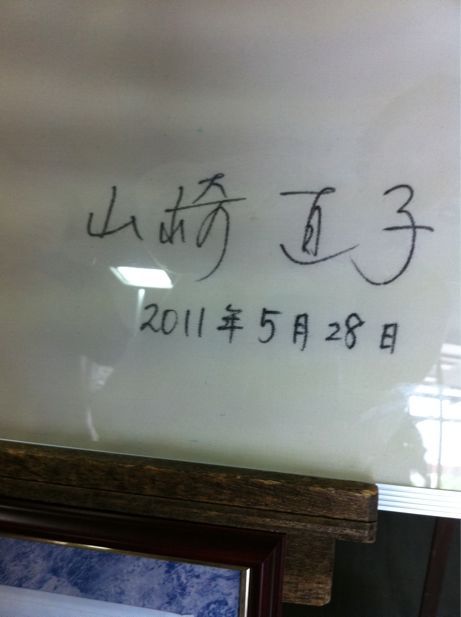 山崎 直子
2011年5月28日